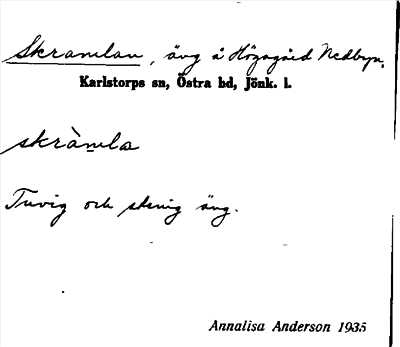 Skramlan, äng å Högagård Nedbyn.
Karlstorps sn, Östra hd, Jönk. l.
skràmla
Tuvig och stenig äng.
Annalisa Anderson 1935